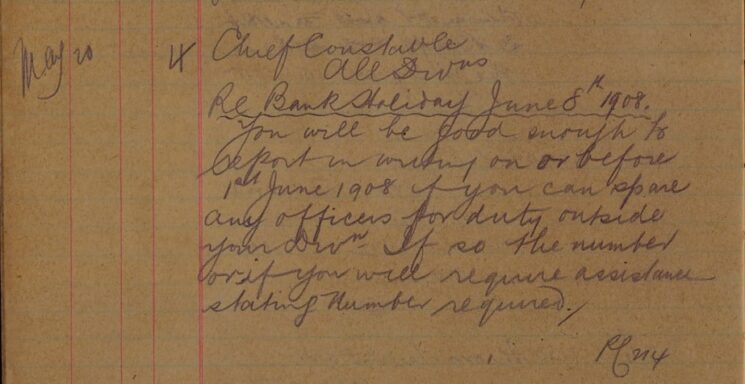 May 20 4 Chief Constable
All Divns
Re Bank Holiday June 8th 1908.
You will be good enough to
report in writing on or before
1st June 1908 if you can spare
any officers for duty outside
your Divn. If so the number
or if you will require assistance
stating number required.